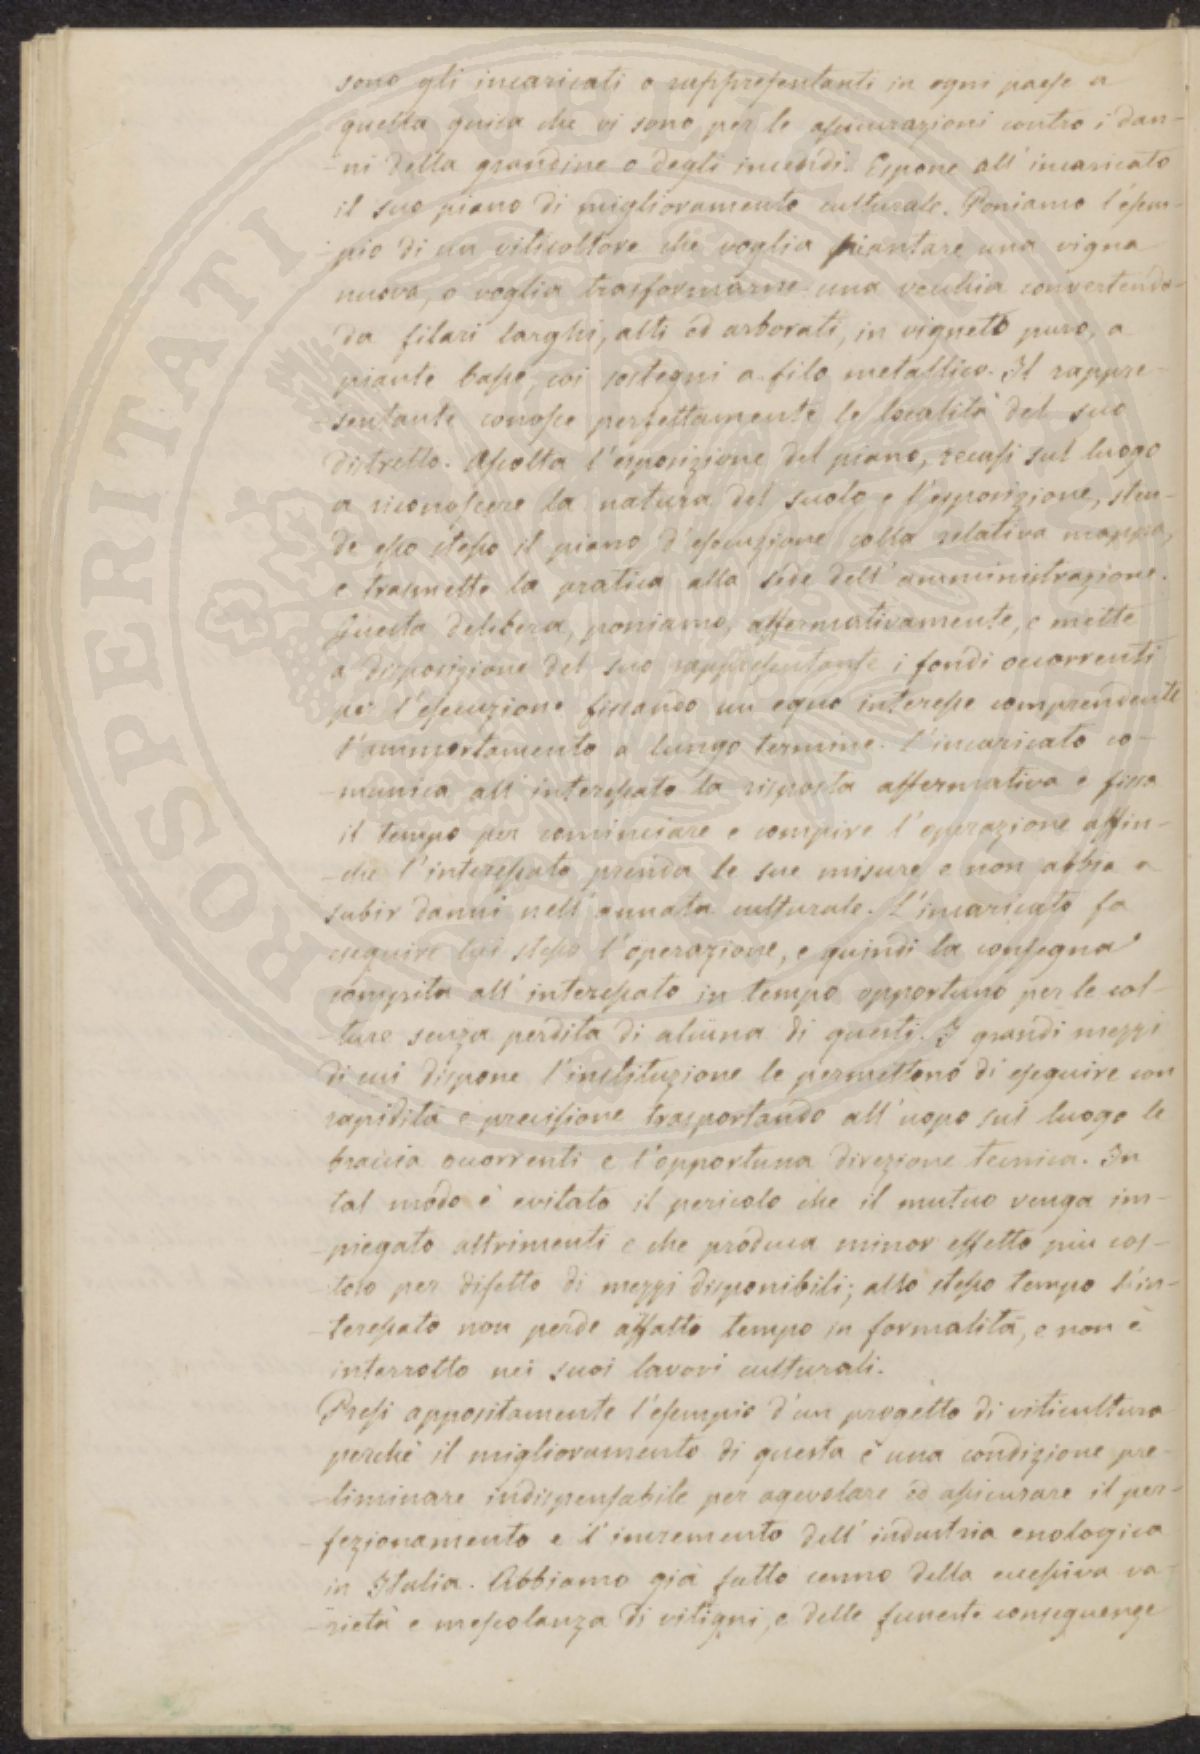 sono gli incaricati o rappresentanti in ogni paese a
quella guisa che vi sono per le assicurazioni contro i dan-
-ni della grandine o degli incendi. Espone all'incaricato
il suo piano di miglioramento culturale. Poniamo l'esem-
-pio di un viticoltore che voglia piantare una vigna
nuova, o voglia trasformarne una vecchia convertendo-
-da filari larghi, alti ed arborati, in vigneto puro, a
piante basse, coi sostegni a filo metallico. Il rappre-
-sentante conosce perfettamente le località del suo
distretto. Ascolta l'esposizione del piano, recasi sul luogo
a riconoscere la natura del suolo e l'esposizione, sten-
de esso stesso il piano d'esecuzione colla relativa mappa,
e trasmette la pratica alla sede dell'amministrazione.
Questa delibera, poniamo, affermativamente, e mette
a disposizione del suo rappresentante i fondi occorrenti
per l'esecuzione fissando un equo interesse comprendente
l'ammortamento a lungo termine. L'incaricato co-
-munica all'interessato la risposta affermativa e fissa
il tempo per cominciare e compire l'operazione affin-
-chè l'interessato prenda le sue misure e non abbia a
subir danni nell'annata culturale. L'incaricato fa
eseguire lui stesso l'operazione, e quindi la consegna
compita all'interessato in tempo opportuno per le col-
-ture senza perdita di alcuna di questi. I grandi mezzi
di cui dispone l'instituzione le permettono di eseguire con
rapidità e precisione trasportando all'uopo sul luogo le
braccia occorrenti e l'opportuna direzione tecnica. In
tal modo è evitato il pericolo che il mutuo venga im-
-piegato altrimenti e che produca minor effetto più cos-
-toso per difetto di mezzi disponibili; allo stesso tempo l'in-
-teressato non perde affatto tempo in formalità, e non è
interrotto nei suoi lavori culturali.
Presi appositamente l'esempio d'un progetto di viticultura
perchè il miglioramento di questa è una condizione pre-
-liminare indispensabile per agevolare ed assicurare il per-
-fezionamento e l'incremento dell'industria enologica
in Italia. Abbiamo già fatto cenno della eccessiva va-
-rietà e mescolanza di vitigni, e delle funeste conseguenze
PROSPERITATI PUBLICAE